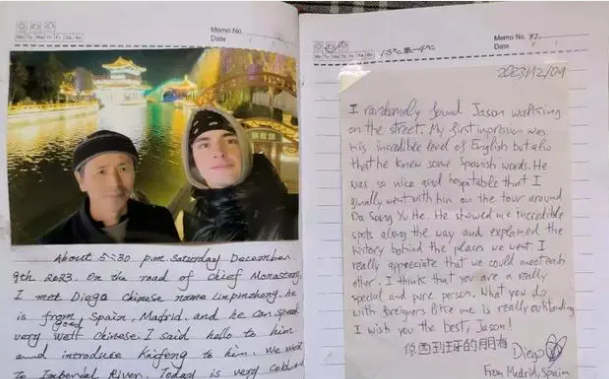 Memo No.
Date
About 5:30 pm. Saturday December.
9th 2023. On the road of Chief Monastery,
I met Diego Chinese name he
is from, Spain, Madrid. and he can speak
good
very well Chinese. I said hello to him
and introduce Kaifeng to him. We went
To Imperial River. Today is very
Memo No.
Date
I randomly found Jason walking
on the street. My first inpression was
his incredible level of English but also
that he knew some Spanish words. He
was so nice and hospitable that I
finally went with him on the tour around
Da Song Yu He. He showed me incredible
spots along the way and explained the
history behind the places we went. I
really appreciate that we could meet each
other. I think that you are a really
special and pure person. What you do
with foreigners like me is really outstanding
I wish you the best, Jason!
西班牙的朋有
Diego
From Madrid, Spain